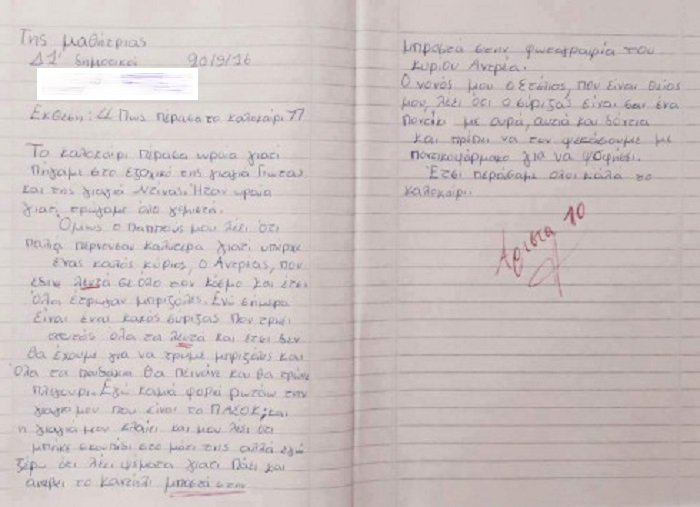 Της μαθήτριας
Δ1' δημοτικού 20/9/16
Εκθεση: "Πως πέρασα το καλοκαίρι"
Το καλοκαίρι πέρασα ωραία γιατί
Πήγαμε στο εξοχικό της γιαγιά Γιώτας
και της γιαγιά Ντίνας. Ηταν ωραία
γιατί τρώγαμε όλο γεμιστά.
Όμως ο παππούς μου λέει ότι
παλιά περνούσαν καλύτερα γιατί υπήρχε
ένας καλός κύριος, ο Αντρέας, που
έδινε λευτά σε όλο τον κόσμο και έτσι
όλοι έτρωγαν μπριζόλες. Ενώ σήμερα
είναι ένα κακός σύριζας που τρώει
αυτός όλα τα λευτά και έτσι δεν
θα έχουμε για να τρώμε μπριζόλες και
όλα τα παιδάκια θα πεινάνε και θα τρώνε
πλιγούρι. Εγώ καμιά φορά ρωτάω την
γιαγιά μου που είναι το ΠΑΣΟΚ; και
η γιαγιά μου κλαίει και μου λέει ότι
μπήκε σκουπίδι στο μάτι της αλλά εγώ
ξέρω ότι λέει ψέματα γιατί πάει και
ανάβει το καντήλι μπροστά στην
μπροστά στην φωτογραφία του
κυρίου Αντρέα.
Ο νονός μου ο Στέλιος, που είναι θείος
μου, λέει ότι ο σύριζας είναι σαν ένα
ποντίκι με ουρά, αυτιά και δόντια
και πρέπει να τον ψεκάσουμε με
ποντικοφάρμακο για να ψοφήσει.
Έτσι περάσαμε όλοι καλά το
καλοκαίρι.
Άριστα 10